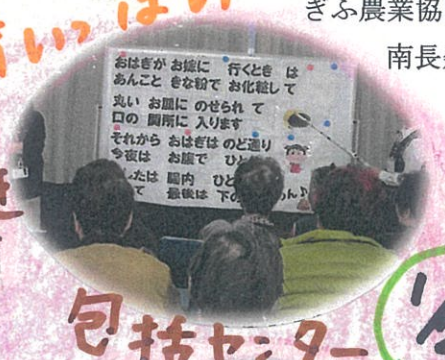 ぎふ農業協
南長
いっぱい
おはぎが お嫁に 行くとき は
あんこと きな粉で お化粧して
丸い お皿に のせられ て
口の 関所に 入ります
それから おはぎは のど通り
今夜は お腹で ひと
たは 腸内 ひと
て 最後は 下の ん♪
包括センター